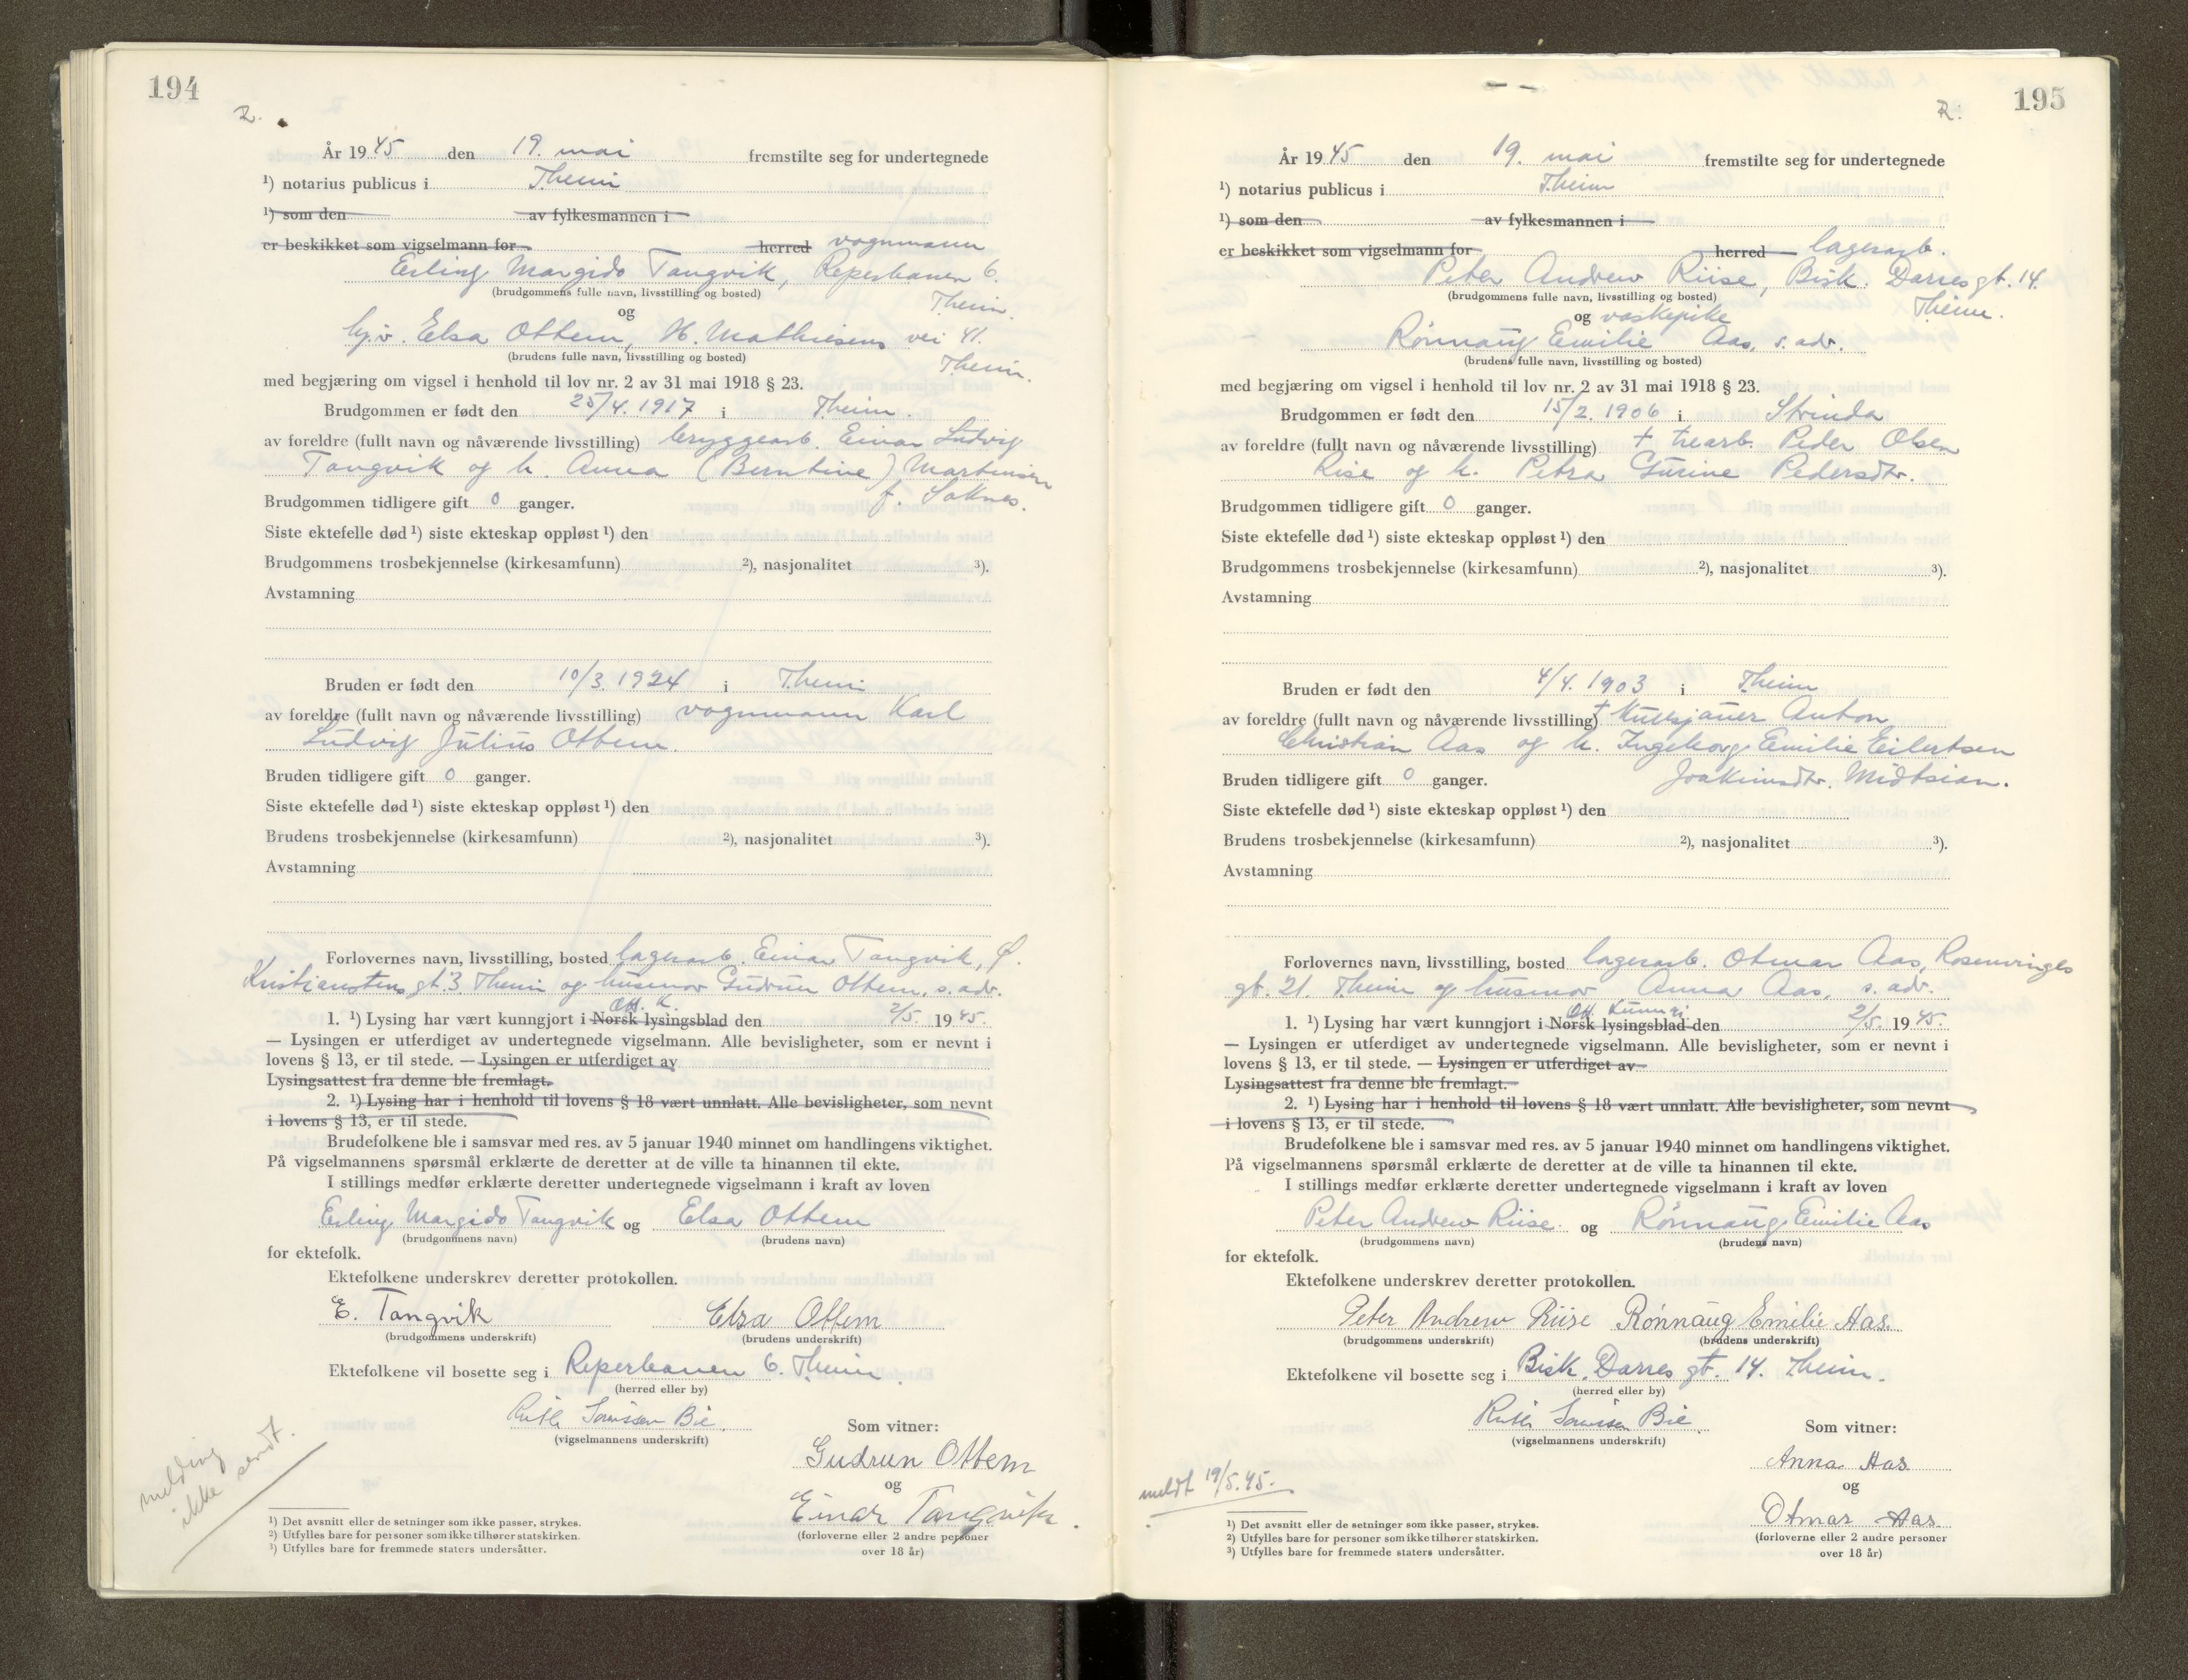 194
R.
År 1945 den 19. mai fremstilte seg for undertegnede
¹) notarius publicus i Theim
¹) som den av fylkesmannen i
er beskikket som vigselmann for herred vognmann
Erling Margido Tangvik, Reperbanen 6.
(brudgommens fulle navn, livsstilling og bosted) Theim.
og
hj.v. Elsa Ottem, H. Mathiesens vei 41.
(brudens fulle navn, livsstilling og bosted) Theim.
med begjæring om vigsel i henhold til lov nr. 2 av 31 mai 1918 § 23.
Brudgommen er født den 25/4. 1917 i Theim.
av foreldre (fullt navn og nåværende livsstilling) bryggearb. Einar Ludvig
Tangvik og h. Anna (Berntine) Martinsen
f. Saknes.
Brudgommen tidligere gift 0 ganger.
Siste ektefelle død ¹) siste ekteskap oppløst ¹) den
Brudgommens trosbekjennelse (kirkesamfunn) ²), nasjonalitet ³).
Avstamning
Bruden er født den 10/3. 1924 i Theim
av foreldre (fullt navn og nåværende livsstilling) vognmann Karl
Ludvig Julius Ottem.
Bruden tidligere gift 0 ganger.
Siste ektefelle død ¹) siste ekteskap oppløst ¹) den
Brudens trosbekjennelse (kirkesamfunn) ²), nasjonalitet ³).
Avstamning
Forlovernes navn, livsstilling, bosted lagerarb. Einar Tangvik, Ø.
Kristianstens gt. 3 Theim og husmor Gudrun Ottem, s. adr.
Off. K.
1. ¹) Lysing har vært kunngjort i Norsk lysingsblad den 2/5. 1945.
— Lysingen er utferdiget av undertegnede vigselmann. Alle bevisligheter, som er nevnt i
lovens § 13, er til stede. — Lysingen er utferdiget av
Lysingsattest fra denne ble fremlagt.
2. ¹) Lysing har i henhold til lovens § 18 vært unnlatt. Alle bevisligheter, som nevnt
i lovens § 13, er til stede.
Brudefolkene ble i samsvar med res. av 5 januar 1940 minnet om handlingens viktighet.
På vigselmannens spørsmål erklærte de deretter at de ville ta hinannen til ekte.
I stillings medfør erklærte deretter undertegnede vigselmann i kraft av loven
Erling Margido Tangvik og Elsa Ottem
(brudgommens navn) (brudens navn)
for ektefolk.
Ektefolkene underskrev deretter protokollen.
E. Tangvik Elsa Ottem
(brudgommens underskrift) (brudens underskrift)
Ektefolkene vil bosette seg i Reperbanen 6. Theim.
(herred eller by)
Ruth Bie
(vigselmannens underskrift)
Som vitner:
Gudrun Ottem
og
Einar Tangvik.
(forloverne eller 2 andre personer
over 18 år)
melding
ikke sendt.
¹) Det avsnitt eller de setninger som ikke passer, strykes.
²) Utfylles bare for personer som ikke tilhører statskirken.
³) Utfylles bare for fremmede staters undersåtter.
195
R.
År 1945 den 19. mai fremstilte seg for undertegnede
¹) notarius publicus i Theim
¹) som den av fylkesmannen i
er beskikket som vigselmann for herred lagerarb.
Peter Andrew Riise, Bisk. Darres gt. 14.
(brudgommens fulle navn, livsstilling og bosted) Theim.
og vaskepike
Rønnaug Emilie Aas, s. adr.
(brudens fulle navn, livsstilling og bosted)
med begjæring om vigsel i henhold til lov nr. 2 av 31 mai 1918 § 23.
Brudgommen er født den 15/2. 1906 i Strinda
av foreldre (fullt navn og nåværende livsstilling) + trearb. Peder Olsen
Rise og h. Petra Gurine Pedersdtr.
Brudgommen tidligere gift 0 ganger.
Siste ektefelle død ¹) siste ekteskap oppløst ¹) den
Brudgommens trosbekjennelse (kirkesamfunn) ²), nasjonalitet ³).
Avstamning
Bruden er født den 4/4. 1903 i Theim
av foreldre (fullt navn og nåværende livsstilling) + kullsjauer Anton
Christian Aas og h. Ingeborg Emilie Eilertsen
Joakimsdtr. Midtsian.
Bruden tidligere gift 0 ganger.
Siste ektefelle død ¹) siste ekteskap oppløst ¹) den
Brudens trosbekjennelse (kirkesamfunn) ²), nasjonalitet ³).
Avstamning
Forlovernes navn, livsstilling, bosted lagerarb. Otmar Aas, Rosenvinges
gt. 21. Theim og husmor Anna Aas, s. adr.
Off. Kunngj.
1. ¹) Lysing har vært kunngjort i Norsk lysingsblad den 2/5. 1945.
— Lysingen er utferdiget av undertegnede vigselmann. Alle bevisligheter, som er nevnt i
lovens § 13, er til stede. — Lysingen er utferdiget av
Lysingsattest fra denne ble fremlagt.
2. ¹) Lysing har i henhold til lovens § 18 vært unnlatt. Alle bevisligheter, som nevnt
i lovens § 13, er til stede.
Brudefolkene ble i samsvar med res. av 5 januar 1940 minnet om handlingens viktighet.
På vigselmannens spørsmål erklærte de deretter at de ville ta hinannen til ekte.
I stillings medfør erklærte deretter undertegnede vigselmann i kraft av loven
Peter Andrew Riise og Rønnaug Emilie Aas
(brudgommens navn) (brudens navn)
for ektefolk.
Ektefolkene underskrev deretter protokollen.
Peter Andrew Riise Rønnaug Emilie Aas.
(brudgommens underskrift) (brudens underskrift)
Ektefolkene vil bosette seg i Bisk. Darres gt. 14. Theim.
(herred eller by)
Ruth Bie
(vigselmannens underskrift)
Som vitner:
Anna Aas
og
Otmar Aas.
(forloverne eller 2 andre personer
over 18 år)
meldt 19/5.45.
¹) Det avsnitt eller de setninger som ikke passer, strykes.
²) Utfylles bare for personer som ikke tilhører statskirken.
³) Utfylles bare for fremmede staters undersåtter.